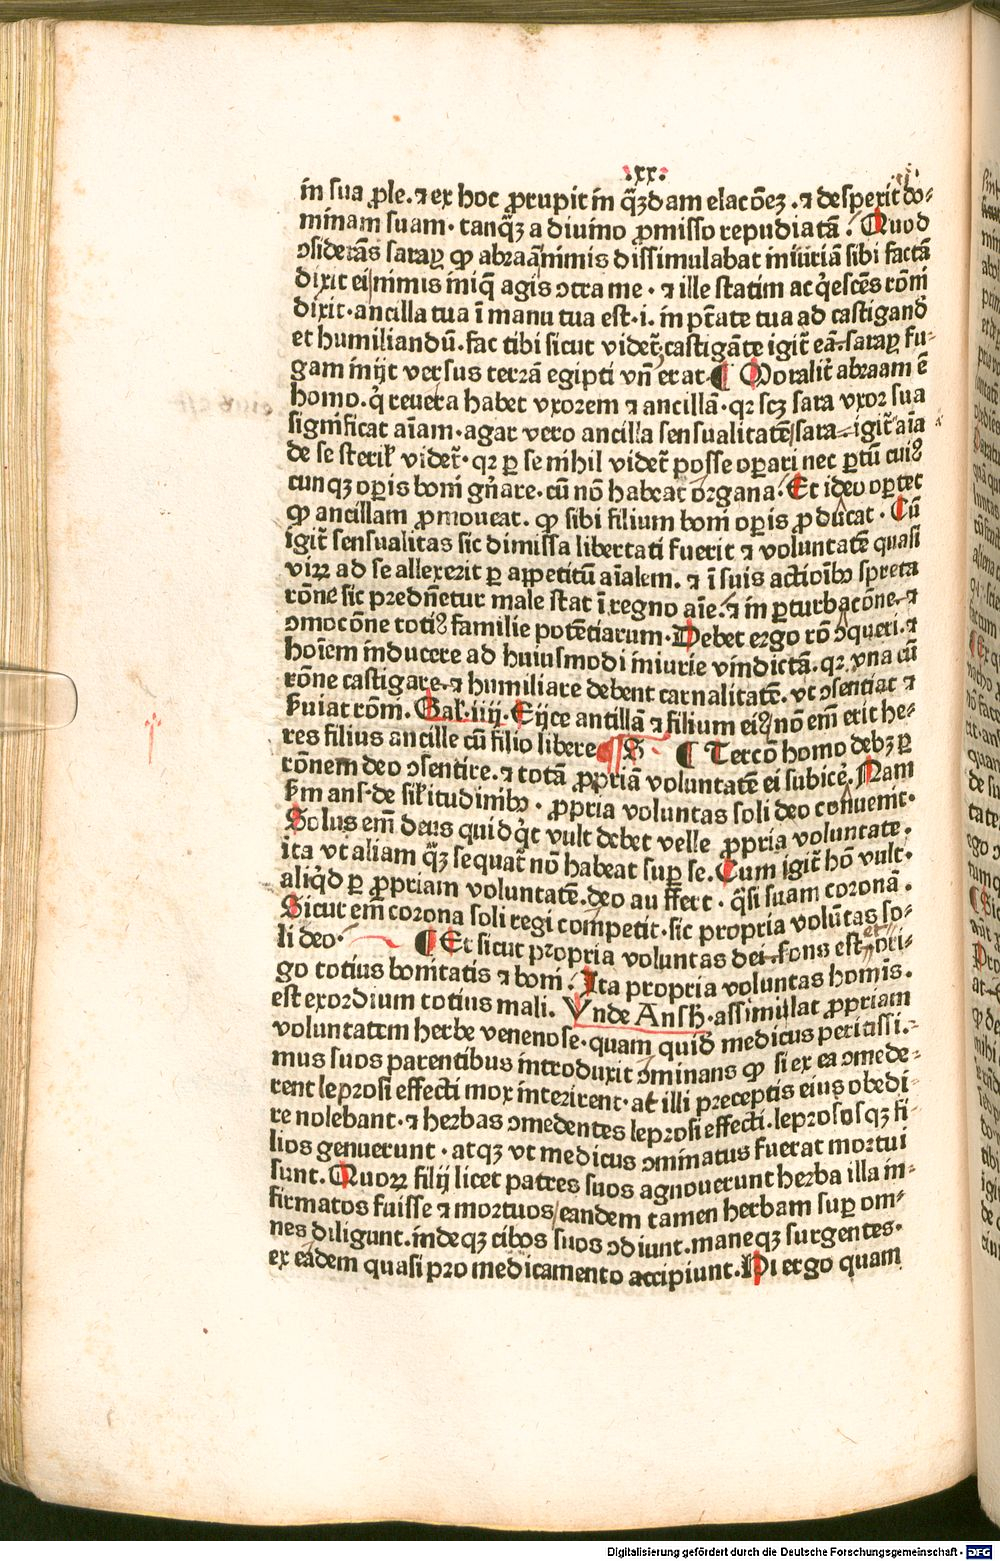 .xx.
in sua ꝓle. ⁊ ex hoc ꝓrupit in q̄ꝫdam elacōeꝫ .⁊ despexit do⸗
minam suam. tanq̄ꝫ a diuino ꝓmisso repudiatā. Quod
ↄsiderās saray ꝙ abraā nimis dissimulabat iniuriā sibi factā
dixit ei nimis iniq̄ agis ↄtra me . ⁊ ille statim acq̇escēs rōni
dixit. ancilla tua ī manu tua est .i. in ptāte tua ad castigand
et humiliandū. fac tibi sicut videt̄. castigāte igit̄ eā saray fu⸗
gam inijt versus terrā egipti vn̄ erat. ¶ Moralit̄ abraam ē
homo. q̇ reuera habet vxorem ⁊ ancillā. qꝛ scꝫ sara vxor sua
significat aīam. agar vero ancilla sensualitatē sara igit̄ aīa
de se steril videt̄. qꝛ ꝑ se nihil videt̄ posse oꝑari nec ꝑtū cuiꝰ
cunqꝫ oꝑis boni gn̄are. cū nō habeat organa. Et ideo oꝑtet
ꝙ ancillam ꝓmoueat. ꝙ sibi filium boni oꝑis ꝓducat. Cū
igit̄ sensualitas sic dimissa libertati fuerit ⁊ voluntatē quasi
viꝝ ad se allexerit ꝑ appetitū aīalem. ⁊ ī suis actiōibꝰ spreta
rōne sic predn̄etur male stat ī regno aīe. ⁊ in ꝑturbacōne ⁊
ↄmocōne totiꝰ familie potētiarum. Debet ergo rō ↄqueri. ⁊
hoīem inducere ad huiusmodi iniurie vindictā. qꝛ vna cū
rōne castigare ⁊ humiliare debent carnalitatē. vt ↄsentiat ⁊
ẜuiat rōni. Gal. iiij. Eijce ancillā ⁊ filium eiꝰ nō em̄ erit he⸗
res filius ancille cū filio libere ¶ S ¶ Tercō homo debꝫ ꝑ
rōnem deo ↄsentire. ⁊ totā ꝓpriā voluntatē ei subicē. Nam
ẜm ans. de sil̄itudinibꝰ . ꝓpria voluntas soli deo conuenit.
Solus em̄ deus quidq̇t vult debet velle ꝓpria voluntate.
ita vt aliam q̄ꝫ sequat̄ nō habeat suꝑ se. Cum igit̄ hō vult.
aliq̇d ꝑ ꝓpriam voluntatē. deo auffert . q̄si suam coronā.
Sicut em̄ corona soli regi competit. sic propria volūtas so⸗
li deo. ¶ Et sicut propria voluntas dei fons est ori⸗
go totius bonitatis ⁊ boni. Ita propria voluntas hominis.
est exordium totius mali. Vnde Ansh. assimilat ꝓpriam
voluntatem herbe venenose. quam quid medicus peritissi.
mus suos parentibus introduxit ↄminans ꝙ si ex ea ↄmede⸗
rent leprosi effecti mox interirent. at illi preceptis eius obedi⸗
re nolebant. ⁊ herbas ↄmedentes leprosi effecti. leprososqꝫ fi⸗
lios genuerunt . atqꝫ vt medicus ↄminatus fuerat mortui
sunt. Quoꝝ filij licet patres suos agnouerunt herba illa in⸗
firmatos fuisse ⁊ mortuos eandem tamen herbam suꝑ om⸗
nes diligunt. indeqꝫ cibos suos ↄdiunt. maneqꝫ surgentes.
ex eādem quasi pro medicamento accipiunt. Hi ergo quam
Digitalisierung gefördert durch die Deutsche Forschungsgemeinschaft - DFG